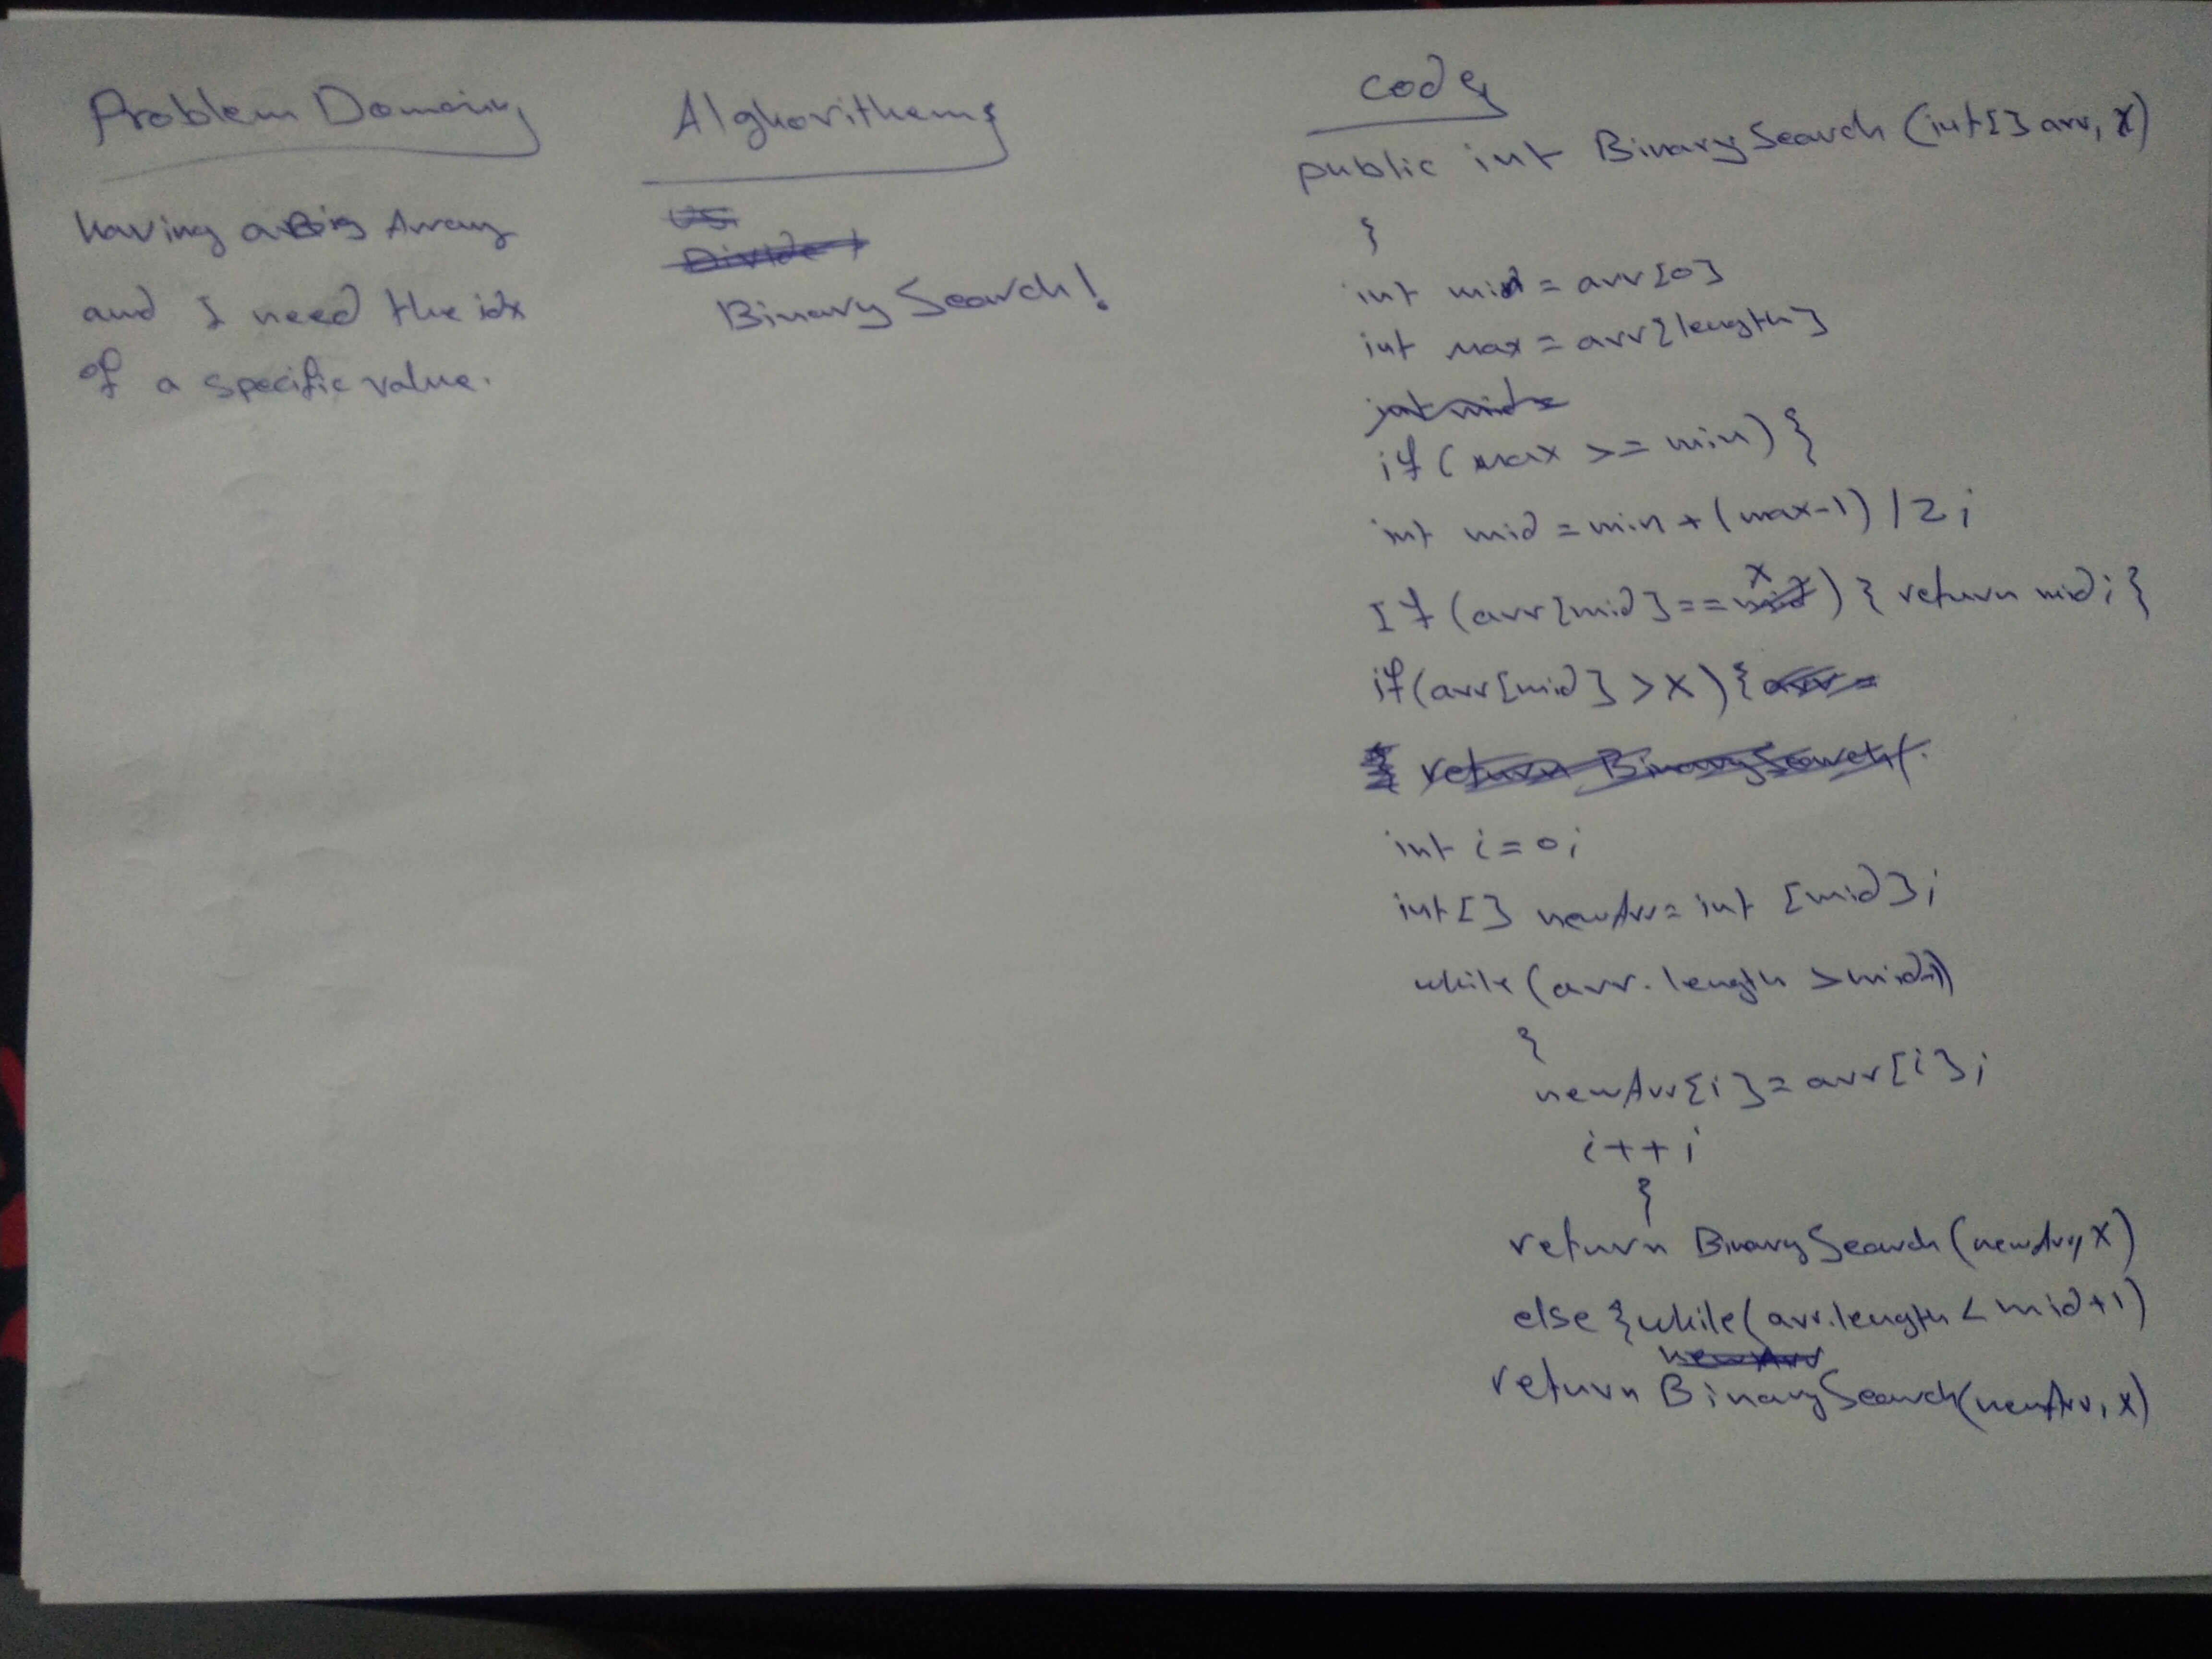 Problem Domain
having a Big Array
and I need the idx
of a specific value.
Alghorithems
Binary Search!
Code
public int BinarySearch(int[] arr, x)
{
int min = arr[0]
int max = arr[length]
int mid =
if (max >= min) {
int mid = min + (max-1) / 2;
If (arr[mid] == x) { return mid; }
if (arr[mid] > x) {
return BinarySearch(
int i = 0;
int[] newArr = int [mid];
while (arr.length > mid)
{
newArr[i] = arr[i];
i++;
}
return BinarySearch(newArr, x)
else { while (arr.length < mid+1)
return BinarySearch(newArr, x)